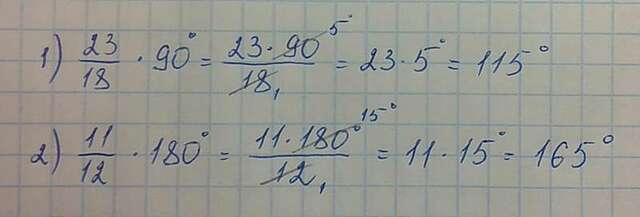 1) 23/18 · 90° = 23·90 5°/18 1 = 23·5° = 115°
2) 11/12 · 180° = 11·180° 15°/12 1 = 11·15° = 165°